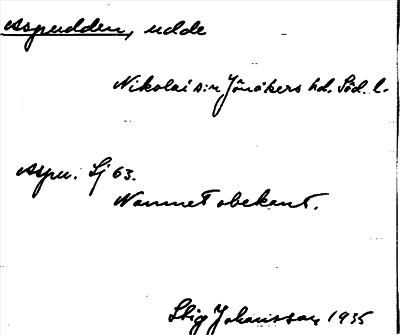 Aspudden, udde
Nikolai s:n Jönåkers hd. Söd. l.
Aspu. Lj 63.
Namnet obekant.
Stig Johansson 1935